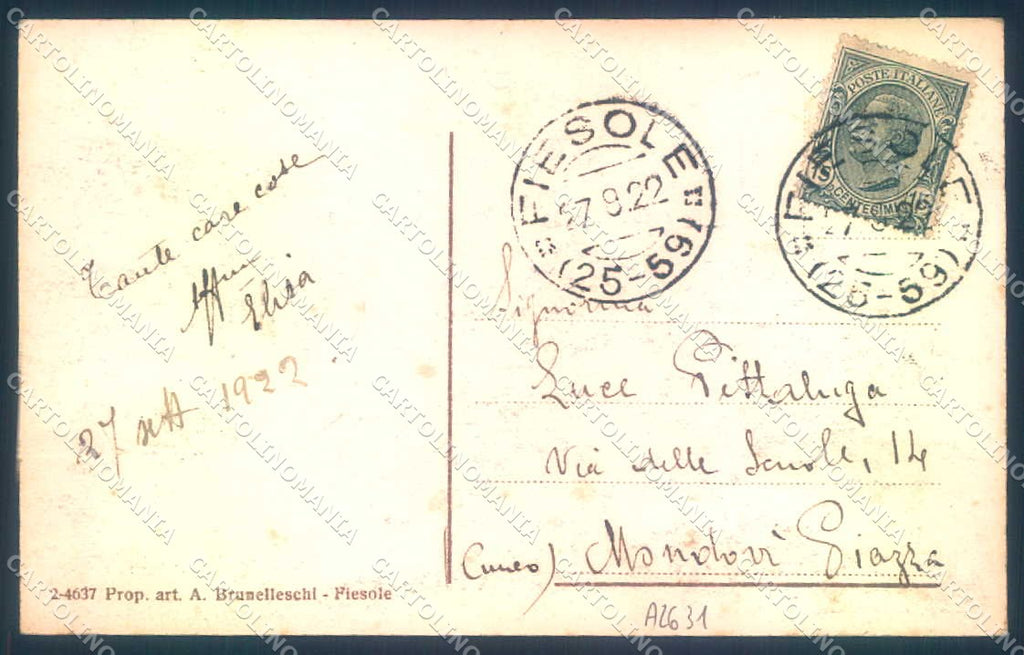 Tante care cose
Aff.ma
Elisa
27 sett 1922
2-4637 Prop. art. A. Brunelleschi - Fiesole
FIESOLE
27 9.22
(25-59)
POSTE ITALIANE
15 CENTESIMI 15
FIESOLE
27 9.22
(25-59)
Signorina
Luce Pittaluga
Via delle Scuole, 14
(Cuneo) Mondovì Piazza
A2631
CARTOLINOMANIA